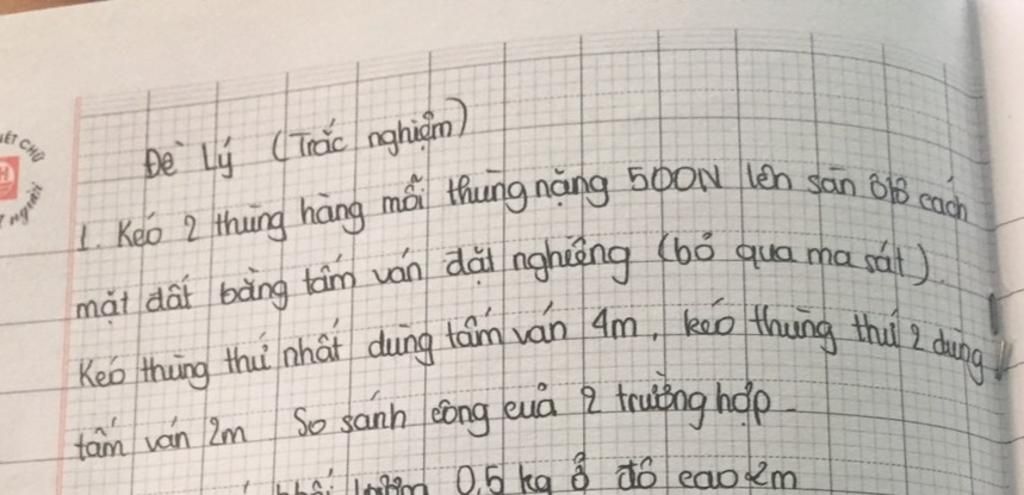 Đề Lý (Trắc nghiệm)
1. Kéo 2 thùng hàng mỗi thùng nặng 500N lên sàn ôtô cách
mặt đất bằng tấm ván đặt nghiêng (bỏ qua ma sát).
Kéo thùng thứ nhất dùng tấm ván 4m, kéo thùng thứ 2 dùng
tấm ván 2m So sánh công của 2 trường hợp
khối lượng 0,5 kg ở độ cao 2m
CHỮ
người